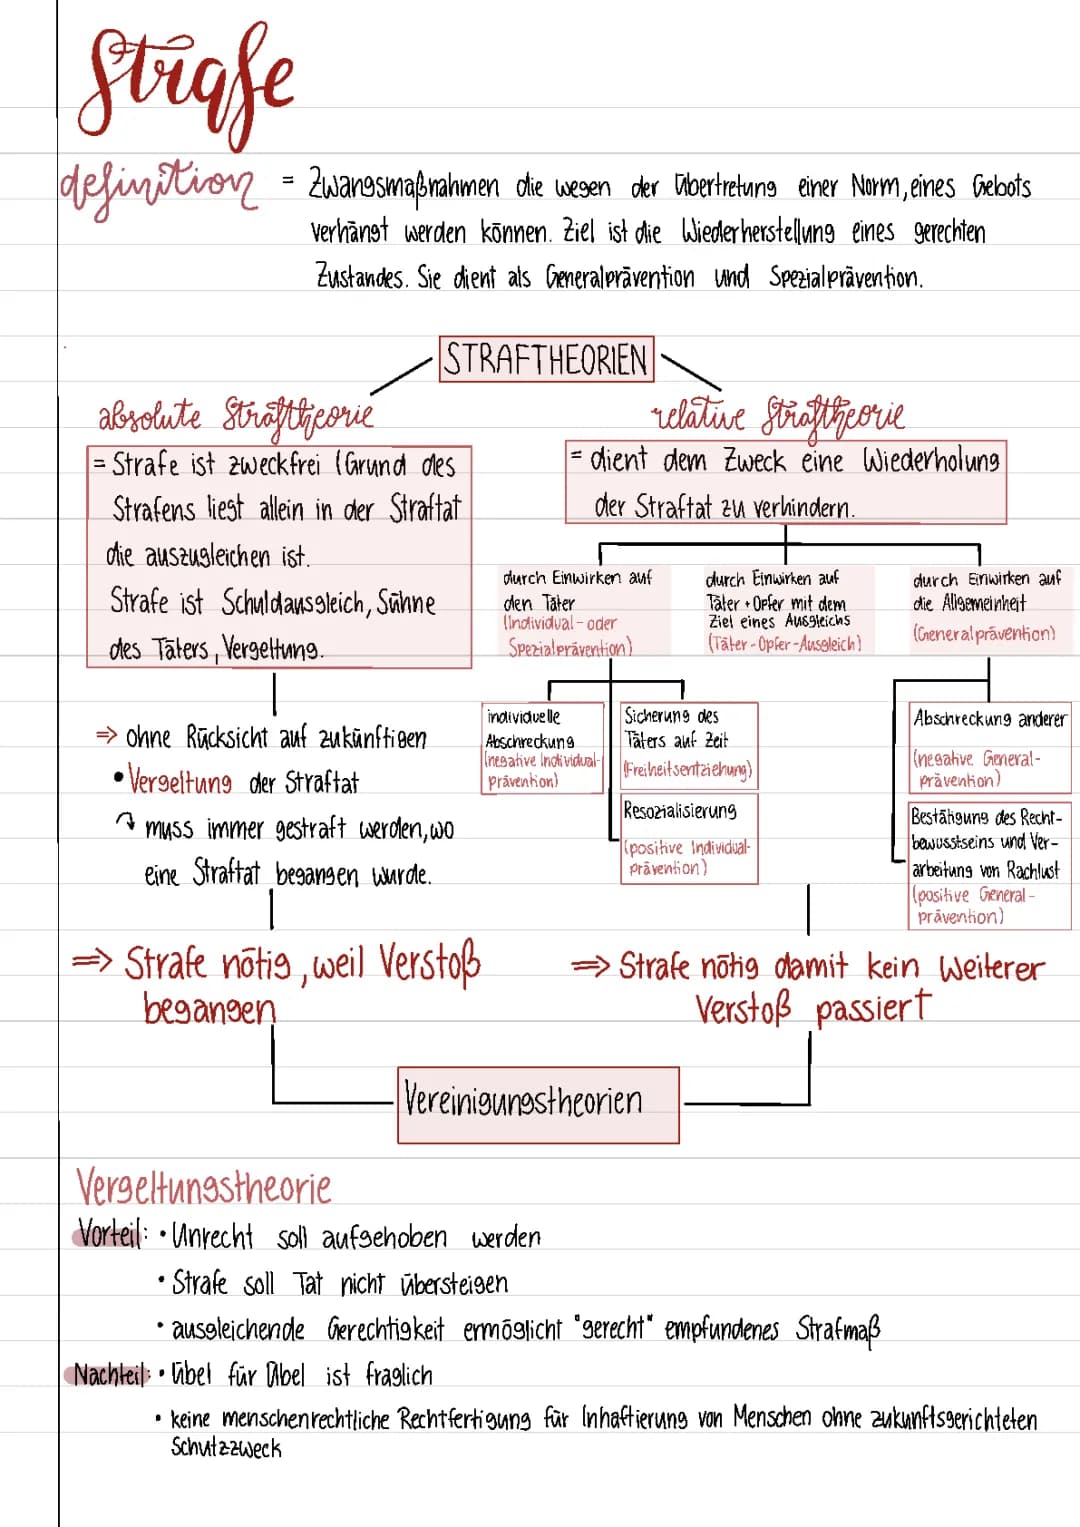 Strafe
definition = Zwangsmaßnahmen die wegen der Übertretung einer Norm, eines Gebots
verhängt werden können. Ziel ist die Wiederherstellung eines gerechten
Zustandes. Sie dient als Generalprävention und Spezialprävention.
STRAFTHEORIEN
absolute Straftheorie
= Strafe ist zweckfrei (Grund des
Strafens liegt allein in der Straftat
die auszugleichen ist.
Strafe ist Schuldausgleich, Sühne
des Täters, Vergeltung.
⇒ ohne Rücksicht auf zukünftigen
• Vergeltung der Straftat
↷ muss immer gestraft werden, wo
eine Straftat begangen wurde.
⇒ Strafe nötig, weil Verstoß
begangen
relative Straftheorie
= dient dem Zweck eine Wiederholung
der Straftat zu verhindern.
durch Einwirken auf
den Täter
(Individual- oder
Spezialprävention)
durch Einwirken auf
Täter + Opfer mit dem
Ziel eines Ausgleichs
(Täter-Opfer-Ausgleich)
durch Einwirken auf
die Allgemeinheit
(Generalprävention)
individuelle
Abschreckung
(negative Individual-
prävention)
Sicherung des
Täters auf Zeit
(Freiheitsentziehung)
Resozialisierung
(positive Individual-
prävention)
Abschreckung anderer
(negative General-
prävention)
Bestätigung des Recht-
bewusstseins und Ver-
arbeitung von Rachlust
(positive General-
prävention)
⇒ Strafe nötig damit kein Weiterer
Verstoß passiert
Vereinigungstheorien
Vergeltungstheorie
Vorteil: • Unrecht soll aufgehoben werden
• Strafe soll Tat nicht übersteigen
• ausgleichende Gerechtigkeit ermöglicht "gerecht" empfundenes Strafmaß
Nachteil: • Übel für Übel ist fraglich
• keine menschenrechtliche Rechtfertigung für Inhaftierung von Menschen ohne zukunftsgerichteten
Schutzzweck